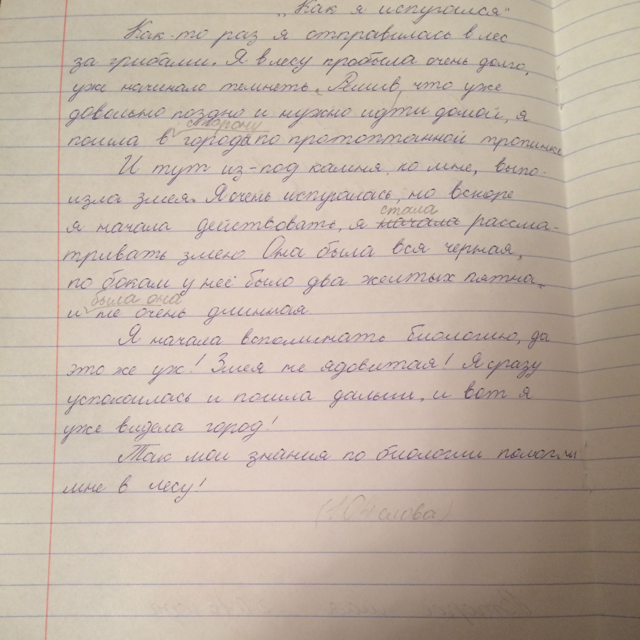 „Как я испугался"
Как-то раз я отправилась в лес
за грибами. Я в лесу пробыла очень долго,
уже начинало темнеть. Решив, что уже
довольно поздно и нужно идти домой, я
сторону
пошла в города по протоптанной тропинке
И тут из-под камня, ко мне, выпо-
лзла змея. Я очень испугалась, но вскоре
стала
я начала действовать, я начала рассма-
тривать змею. Она была вся черная,
по бокам у неё было два желтых пятна,
была она
и не очень длинная.
Я начала вспоминать биологию, да
это же уж! Змея не ядовитая! Я сразу
успокоилась и пошла дальше, и вот я
уже видела город!
Так мои знания по биологии помогли
мне в лесу!
слова)